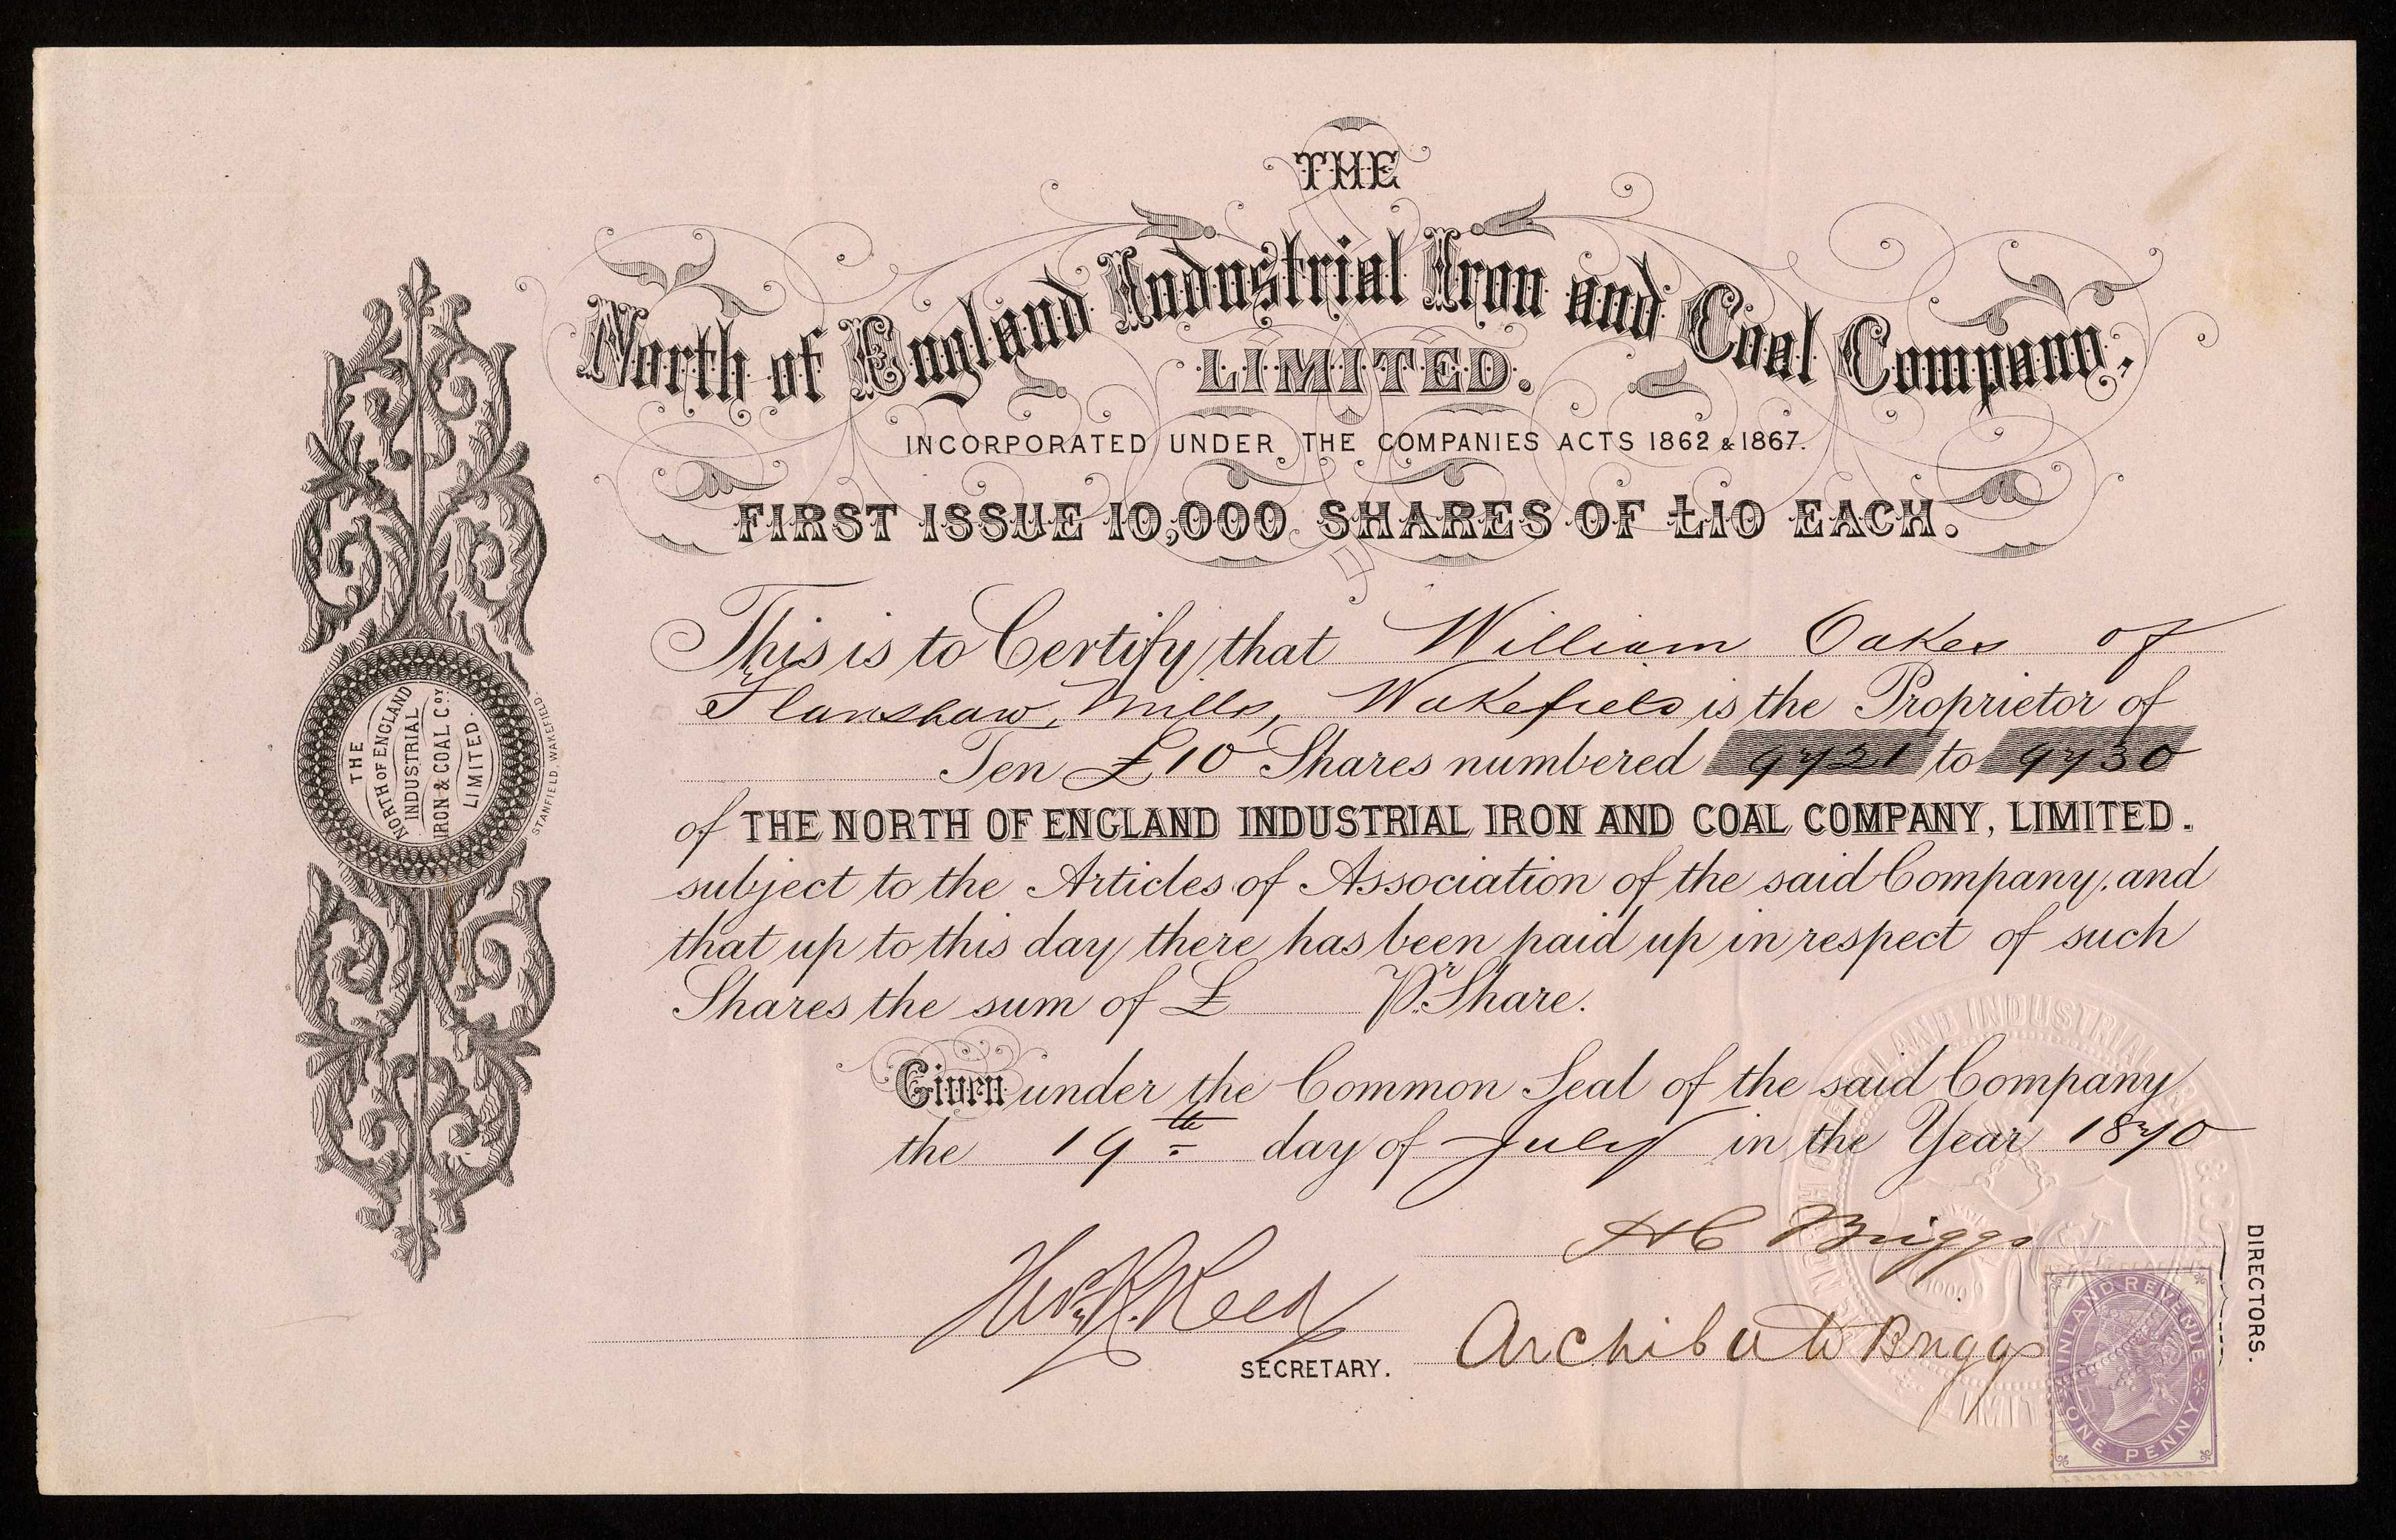 THE
North of England Industrial Iron and Coal Company,
LIMITED.
INCORPORATED UNDER THE COMPANIES ACTS 1862 & 1867.
FIRST ISSUE 10,000 SHARES OF £10 EACH.
This is to Certify that William Oakes of
Flanshaw, Mills, Wakefield is the Proprietor of
Ten £10 Shares numbered 9721 to 9730
of THE NORTH OF ENGLAND INDUSTRIAL IRON AND COAL COMPANY, LIMITED.
subject to the Articles of Association of the said Company, and
that up to this day there has been paid up in respect of such
Shares the sum of £ Pr. Share.
Given under the Common Seal of the said Company
the 19th day of July in the Year 1870
H C Briggs
Archibald Briggs
DIRECTORS.
R. Reed
SECRETARY.
THE
NORTH OF ENGLAND
INDUSTRIAL
IRON & COAL COY.
LIMITED.
STANFIELD, WAKEFIELD.
ENGLAND INDUSTRIAL
INLAND REVENUE
ONE PENNY